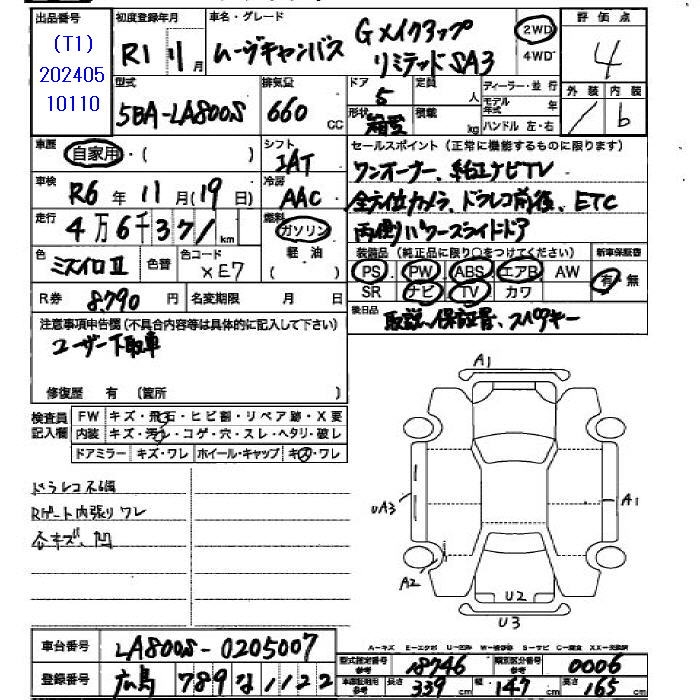 出品番号 初度登録年月 車名・グレード 評価点
(T1)
202405
10110
R1 11月 ムーヴキャンバス Gメイクアップ リミテッド SA3 2WD 4WD 4
型式 排気量 ドア 定員 ディーラー・並行 外装 内装
5BA-LA800S 660 CC 5 人 モデル年式 年
形状 箱型 積載 kg ハンドル 左・右 b
車歴 自家用・( ) シフト IAT セールスポイント (正常に機能するものに限ります)
ワンオーナー、純正ナビTV
車検 R6年 11月(19日) 冷房 AAC 全方位カメラ、ドラレコ前後、ETC
走行 4万6千371km 燃料 ガソリン 両側パワースライドドア
軽油
装備品 (純正品に限り○をつけてください) 新車保証書
色 ミズイロⅡ 色替 色コード XE7 ( ) PS PW ABS エアB AW 有・無
R券 8,790円 名変期限 月 日 SR ナビ TV カワ
注意事項申告欄 (不具合内容等は具体的に記入して下さい) 後日品 取説、保証書、スペアキー
ユーザー下取車
修復歴 有 〔箇所 〕
検査員記入欄 FW キズ・飛石・ヒビ割・リペア跡・X要
内装 キズ・汚レ・コゲ・穴・スレ・ヘタリ・破レ
ドアミラー キズ・ワレ ホイール・キャップ キズ・ワレ
A1
ドラレコ不備
Rゲート内張りワレ
各キズ、凹
UA3
A1
A2
U2
U3
A-キズ E-エクボ U-凹み
車台番号 LA800S-0205007
型式指定番号 参考 18746 類別区分番号 参考 0006
登録番号 広島 789 な 1122
車庫証明用 参考 長さ 339 cm 幅 147 cm 高さ 165 cm